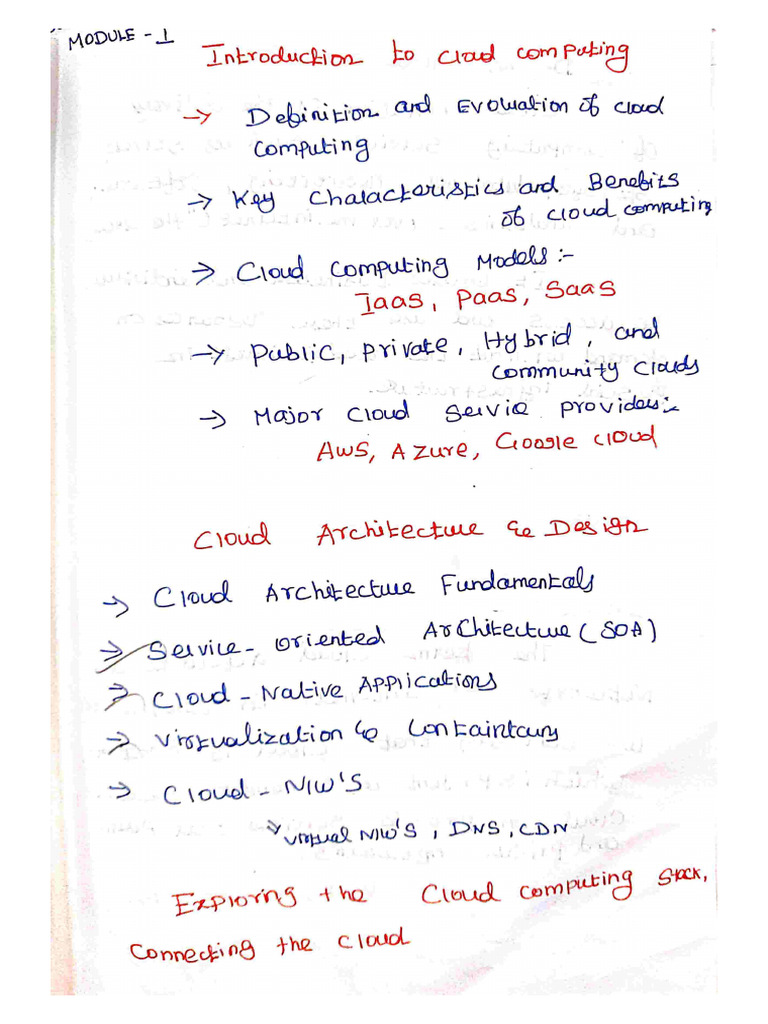 MODULE - 1
Introduction to cloud computing
→ Definition and Evoluation of cloud
computing
→ Key Chalacteristics and Benefits
of cloud computing
→ Cloud computing Models:-
Iaas, Paas, Saas
→ Public, private, Hybrid, and
community clouds
→ Major cloud Service providers:-
Aws, Azure, Google cloud
Cloud Architecture & Design
→ Cloud Architecture Fundamentals
→ Service-oriented Architecture (SOA)
→ Cloud-Native Applications
→ Virtualization &
→ Cloud - N/W'S
→ Virtual N/W'S, DNS, CDN
Exploring the Cloud computing Stack,
Connecting the cloud